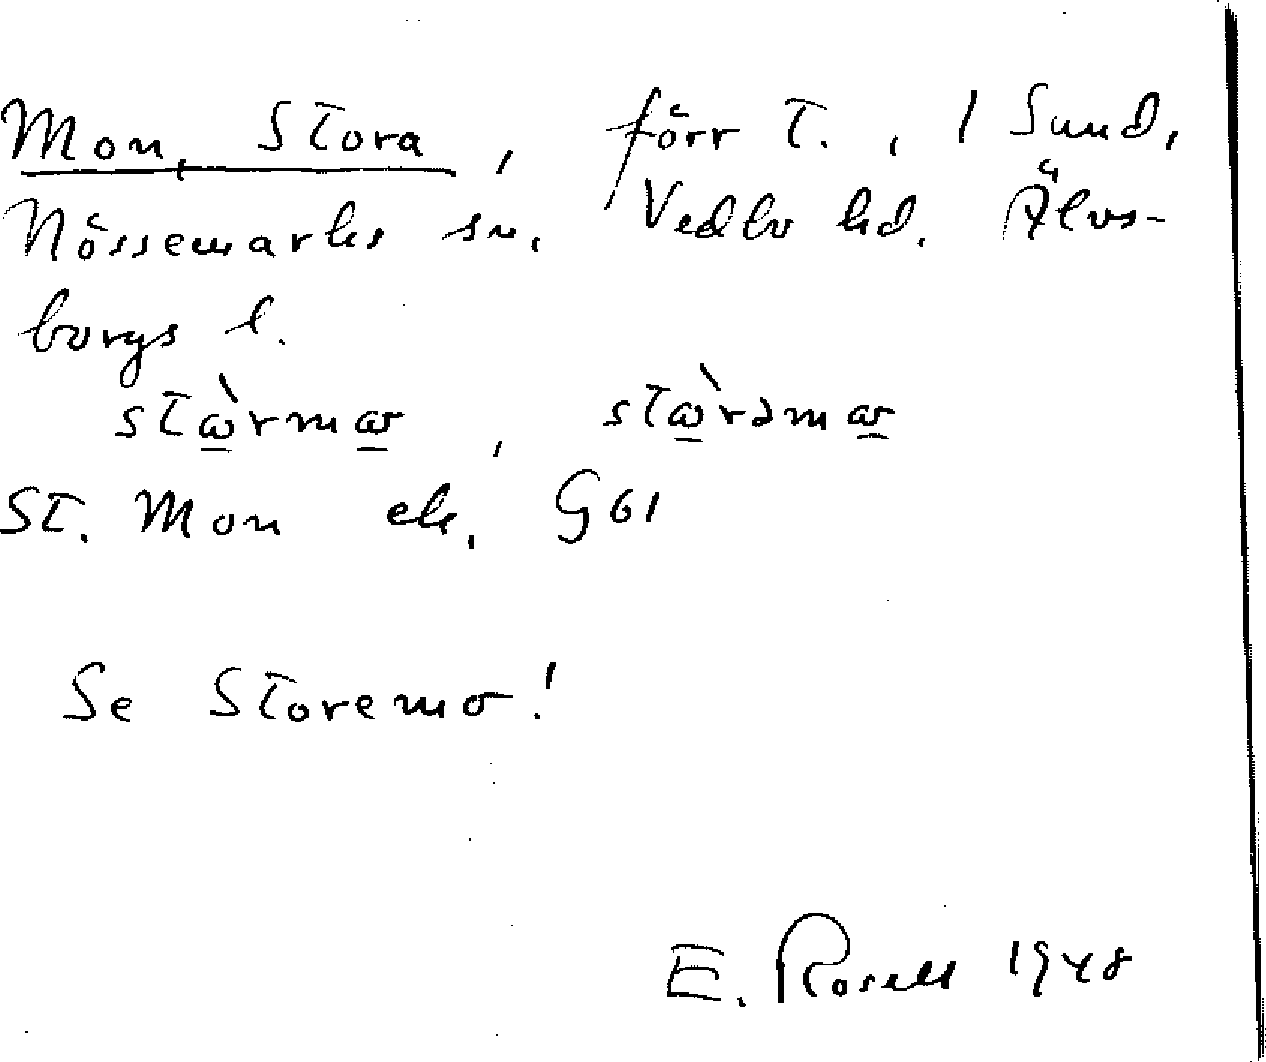 Mon, Stora, förr t., 1 Sund,
Nössemarks sn. Vedbo hd. Älvs-
borgs l.
stὼ̲rmω̲, stὼ̲rəmω̲
St. Mon ek. G61
Se Storemo!
E. Rosell 1948